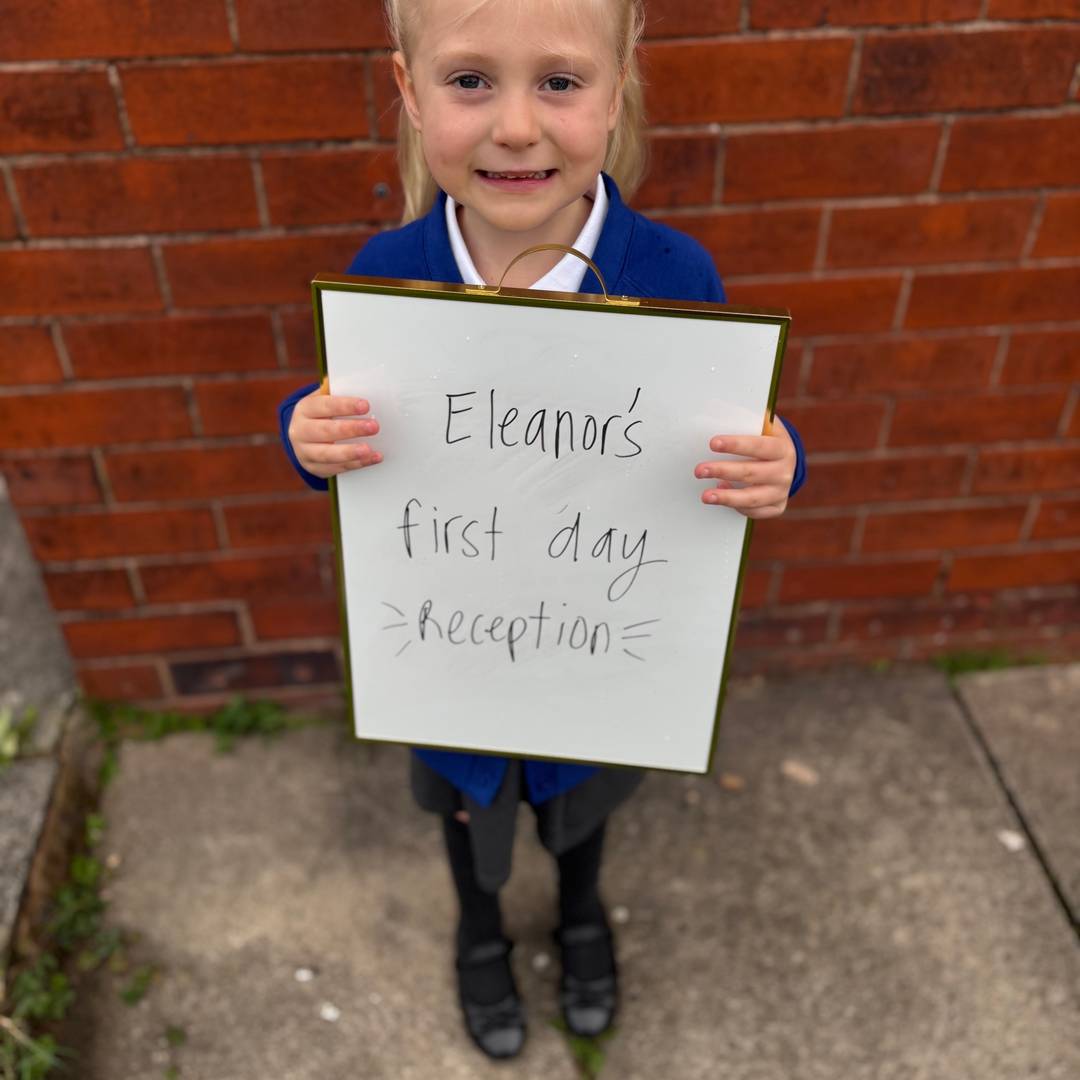 Eleanor's
first day
Reception